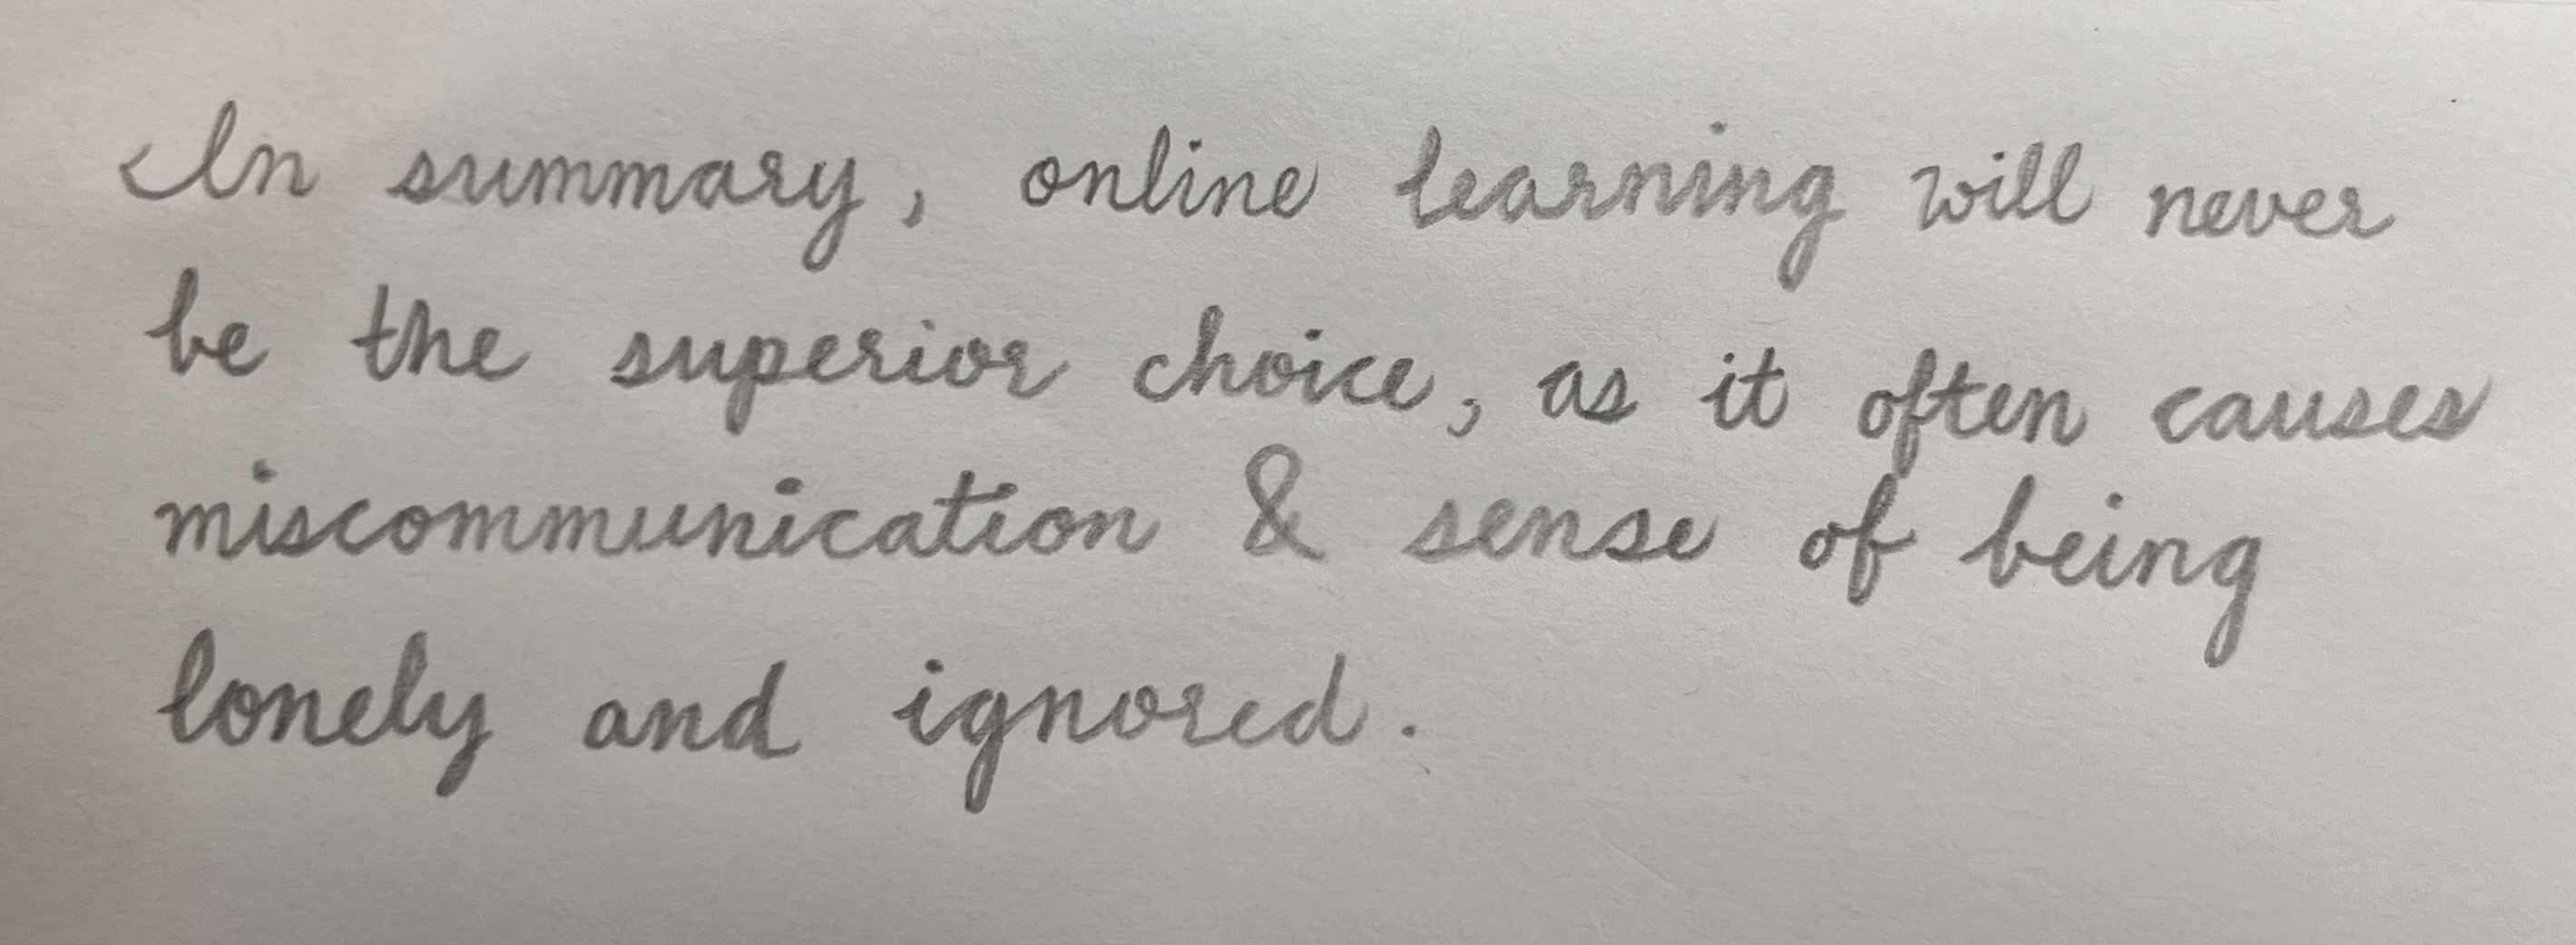 In summary, online learning will never
be the superior choice, as it often causes
miscommunication & sense of being
lonely and ignored.